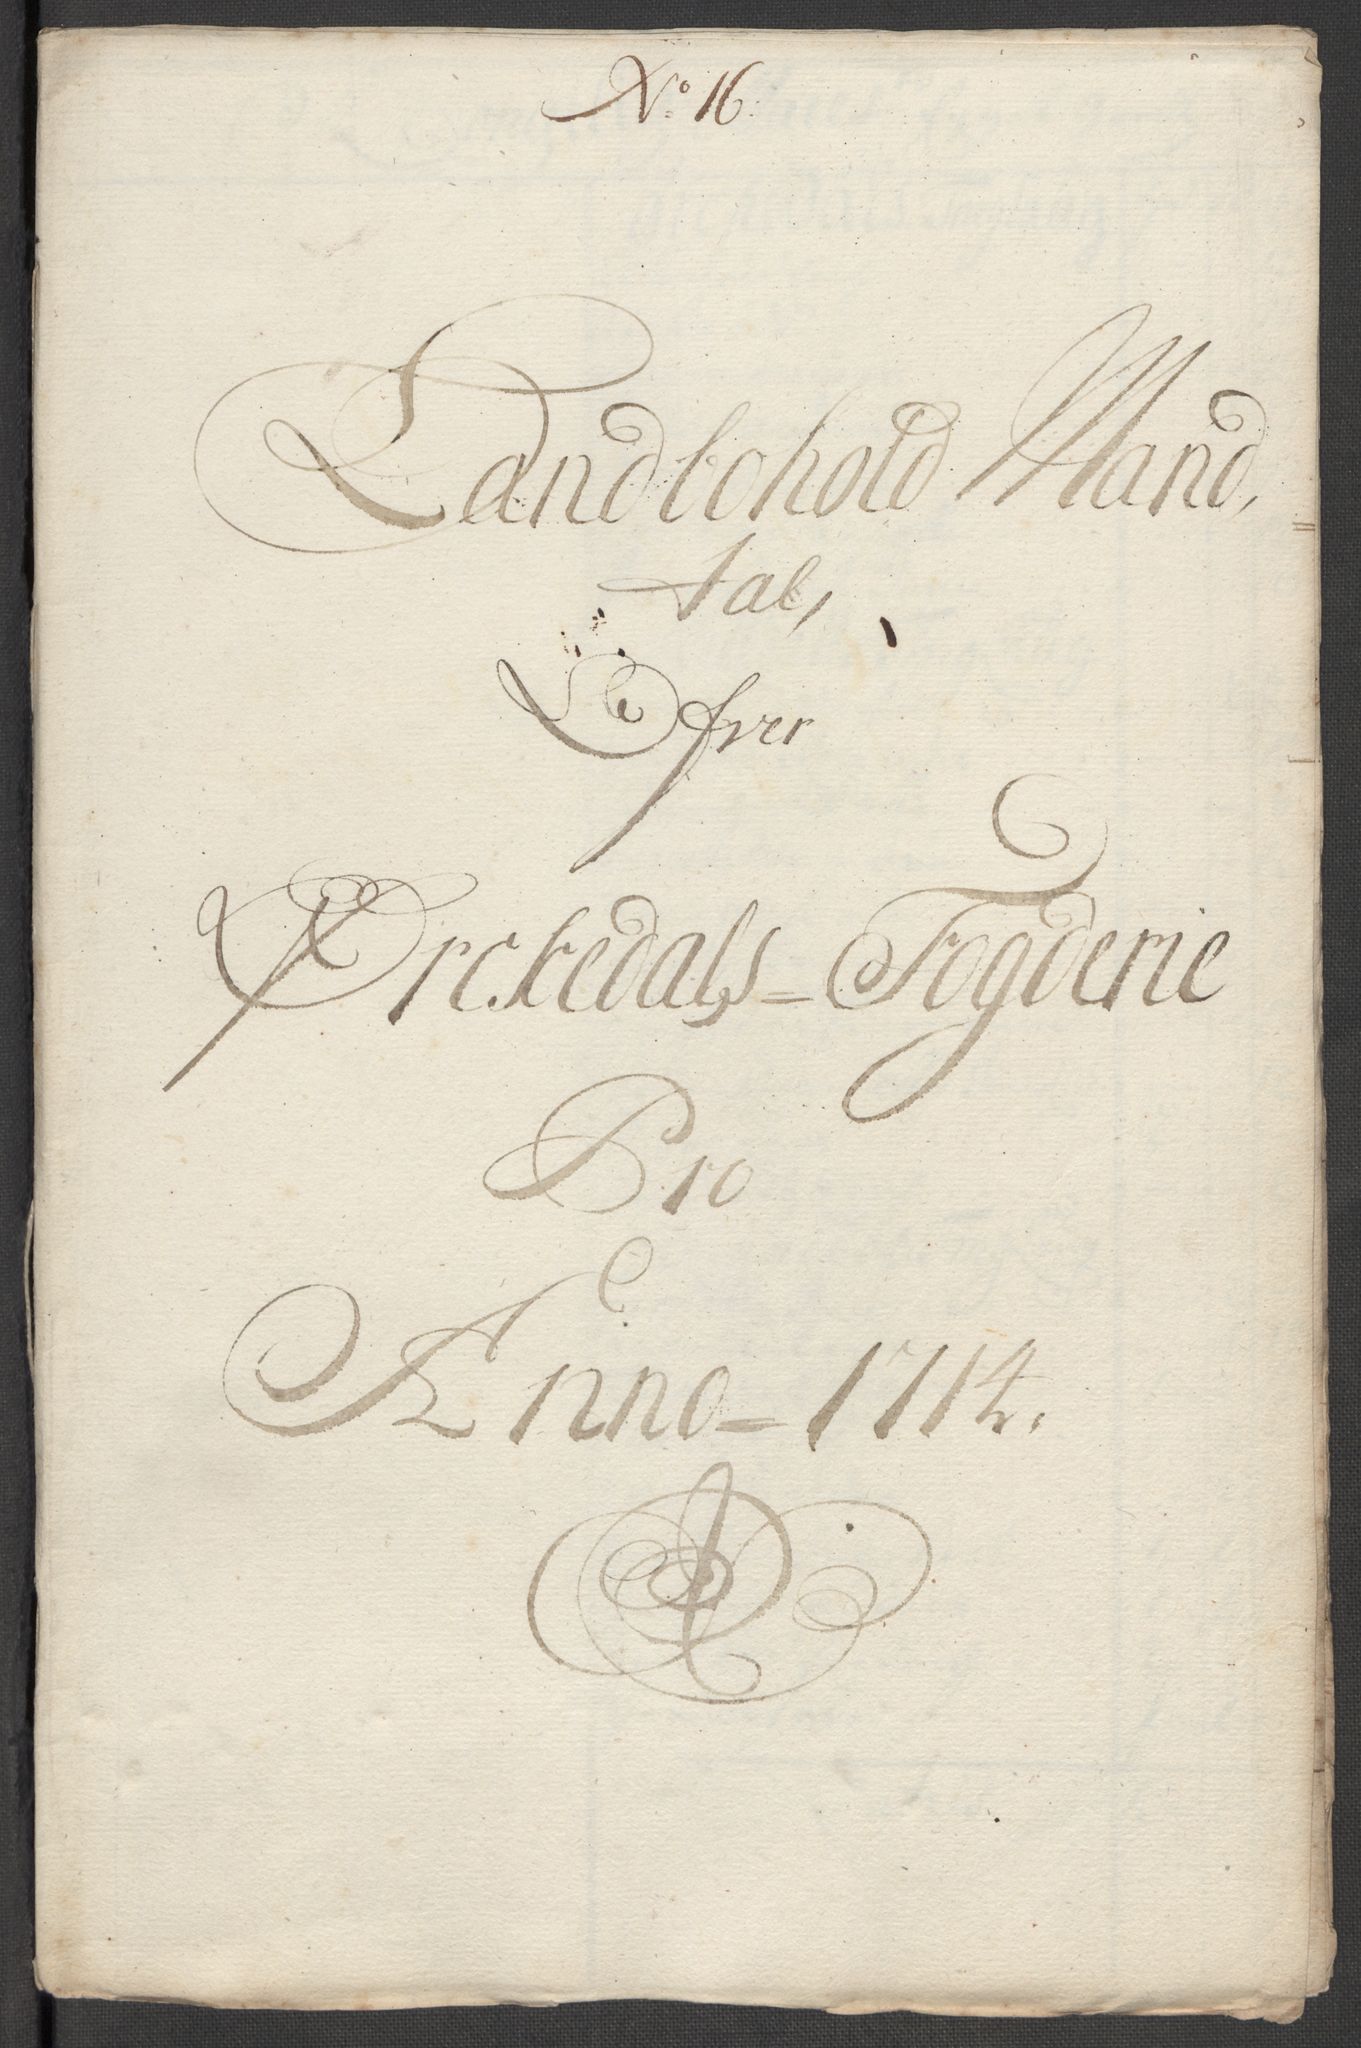 No 16.
Landbohold Mand,
tal,
Ofver
Ørckedals = Fogderie
Pro
Anno = 1714.